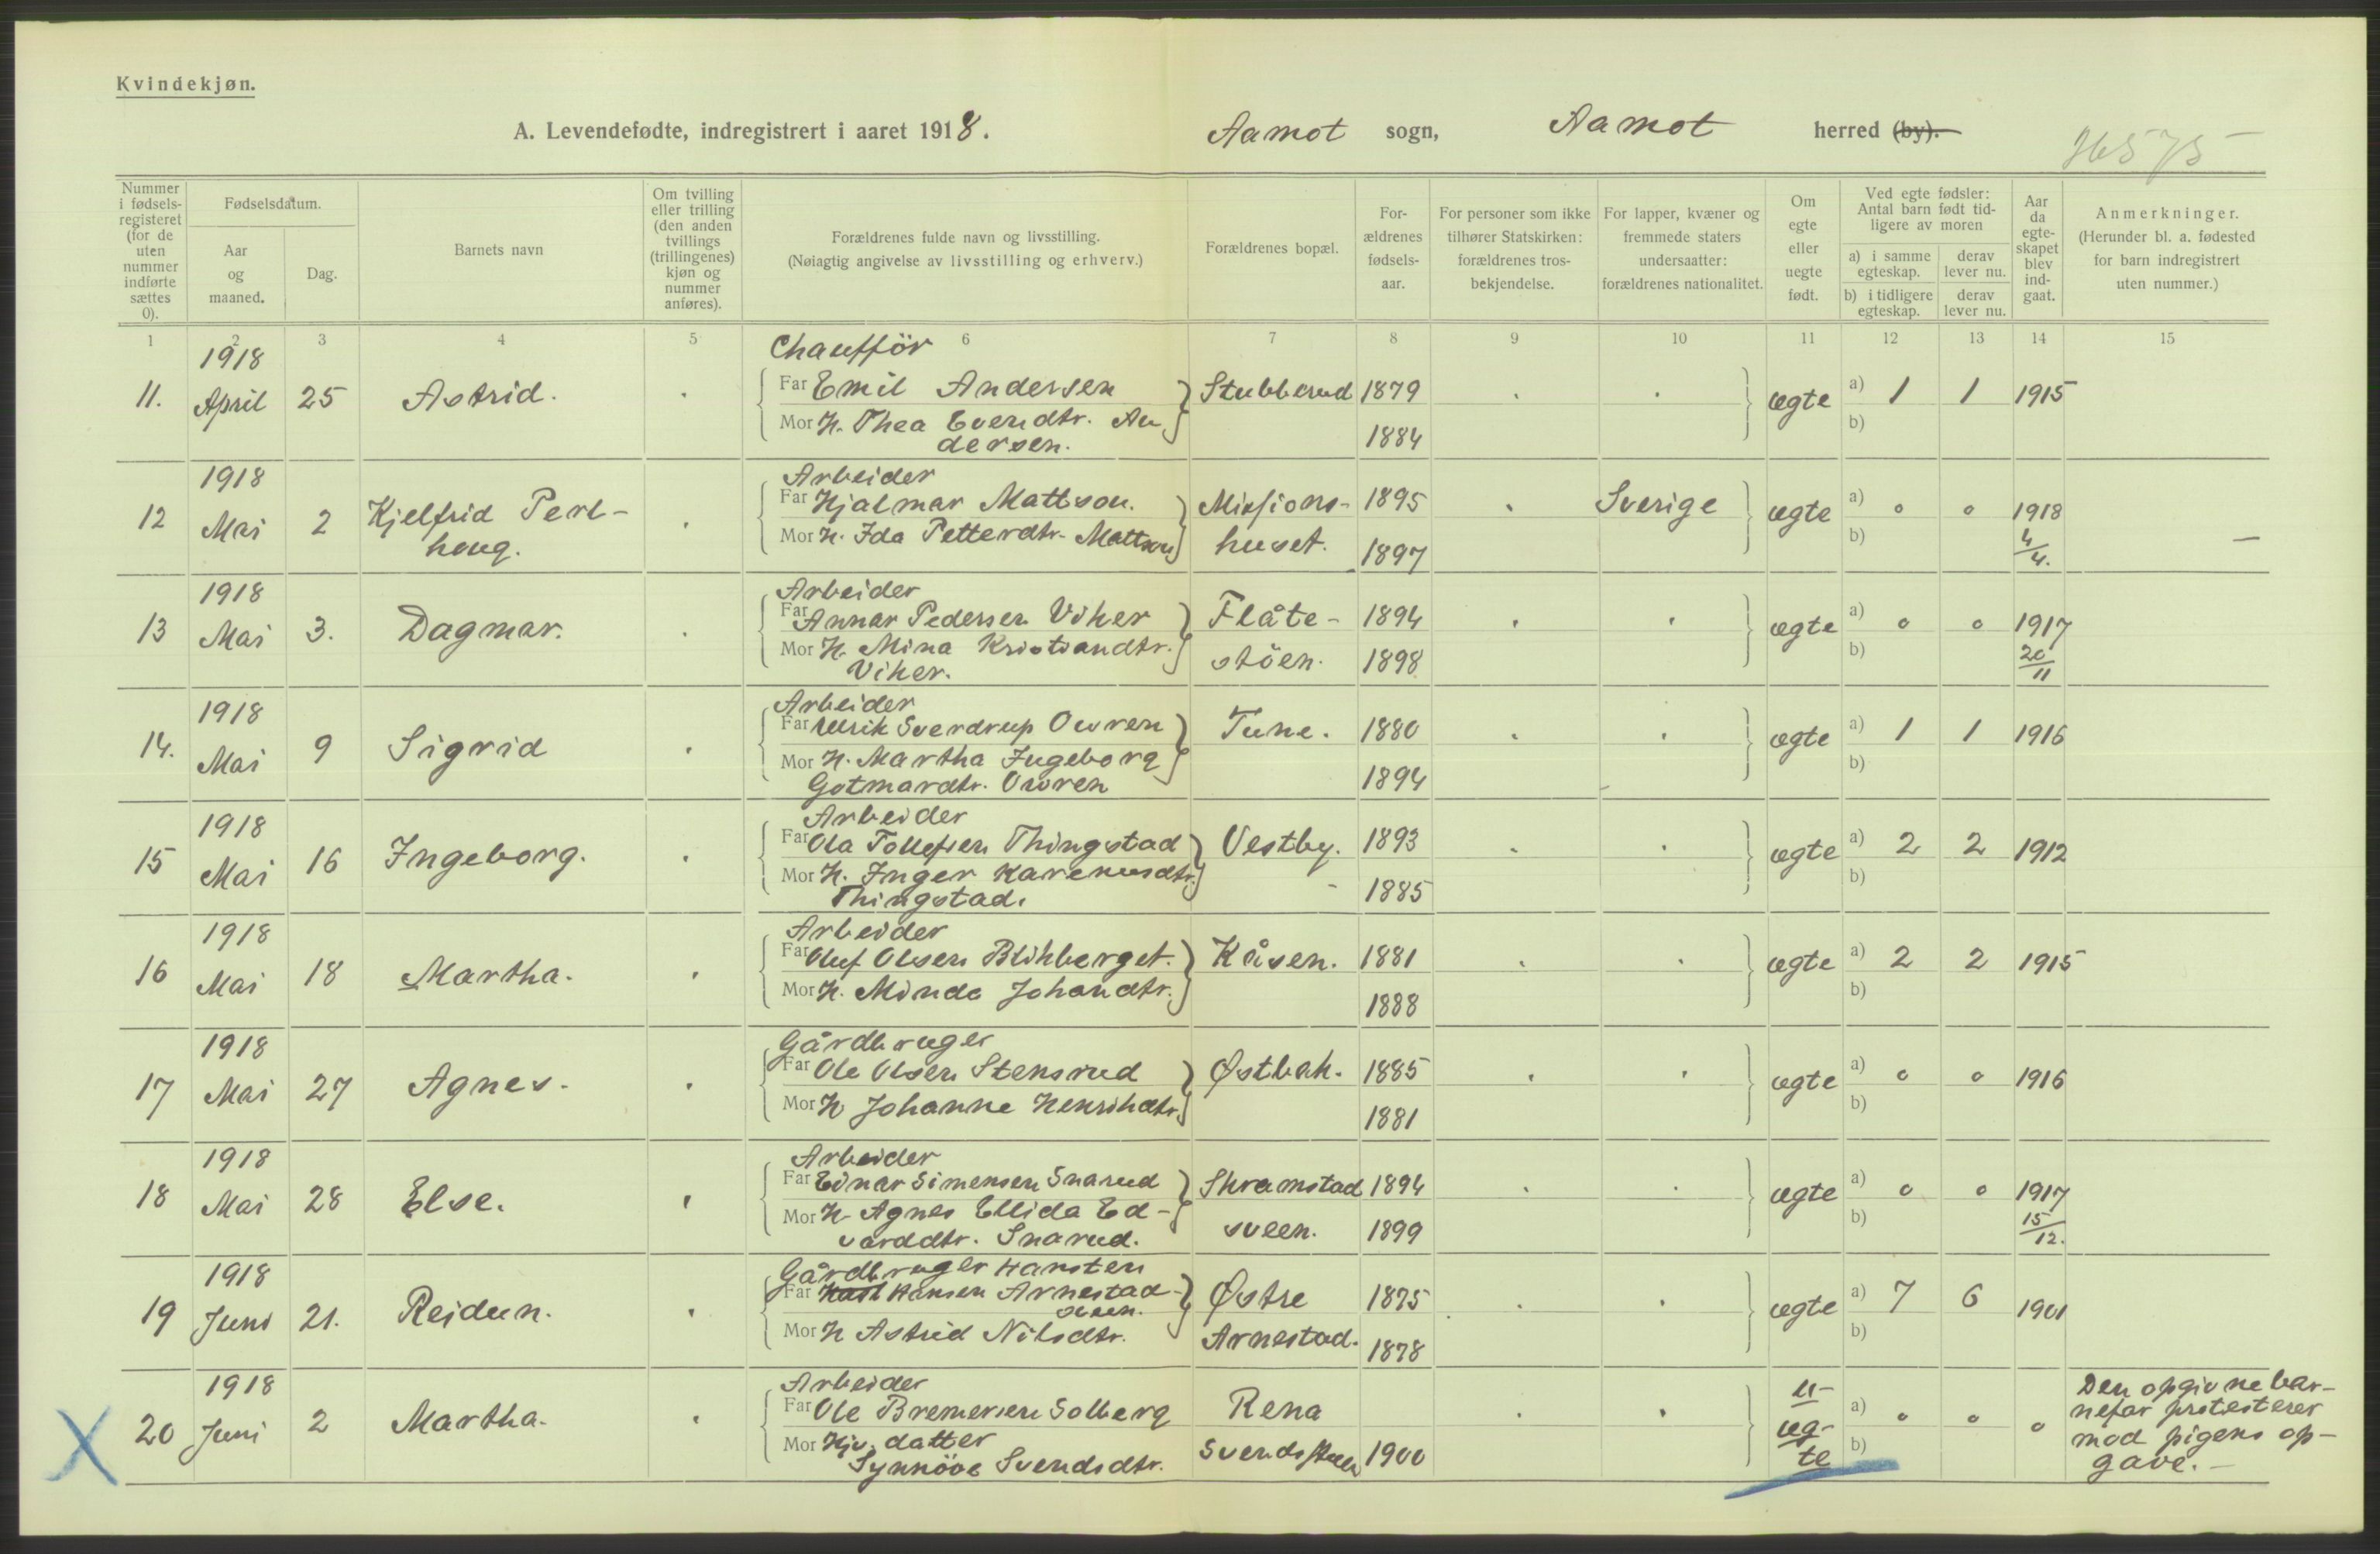 Kvindekjøn.
A. Levendefødte, indregistrert i aaret 1918. Aamot sogn, Aamot herred (by).
36575
Nummer i fødsels-registeret (for de uten nummer indførte sættes 0).
Fødselsdatum.
Aar og maaned.
Dag.
Barnets navn
Om tvilling eller trilling (den anden tvillings (trillingenes) kjøn og nummer anføres).
Forældrenes fulde navn og livsstilling.
(Nøiagtig angivelse av livsstilling og erhverv.)
Forældrenes bopæl.
For-ældrenes fødsels-aar.
For personer som ikke tilhører Statskirken: forældrenes tros-bekjendelse.
For lapper, kvæner og fremmede staters undersaatter: forældrenes nationalitet.
Om egte eller uegte født.
Ved egte fødsler: Antal barn født tid-ligere av moren
a) i samme egteskap. derav lever nu.
b) i tidligere egteskap. derav lever nu.
Aar da egte-skapet blev ind-gaat.
Anmerkninger.
(Herunder bl. a. fødested for barn indregistrert uten nummer.)
1 2 3 4 5 6 7 8 9 10 11 12 13 14 15
1918 Chaufför
11. April 25 Astrid. Far Emil Andersen Stubberud 1879 egte a) 1 1 1915
Mor H. Thea Evendtr. An 1884 b)
dersen.
1918 Arbeider
12 Mai 2 Kjelfrid Perl- Far Hjalmar Mattson. Missions- 1895 Sverige egte a) 0 0 1918
houg. Mor H. Ida Petterdtr. Mattson huset. 1897 b) 4/4.
1918 Arbeider
13 Mai 3. Dagmar. Far Annar Pedersen Viker Flåte- 1894 egte a) 0 0 1917
Mor H. Mina Kristiandtr. stöen. 1898 b) 20/11
Viker.
1918 Arbeider
14. Mai 9 Sigrid Far Ulrik Sverdrup Ouren Tune. 1880 egte a) 1 1 1916
Mor H. Martha Ingeborg 1894 b)
Gotmardtr. Ouren
1918 Arbeider
15 Mai 16 Ingeborg. Far Ola Tollefsen Thingstad Vestby. 1893 egte a) 2 2 1912
Mor H. Inger Karenusdtr. 1885 b)
Thingstad.
1918 Arbeider
16 Mai 18 Martha. Far Oluf Olsen Blikberget. Kåsen. 1881 egte a) 2 2 1915
Mor H. Minda Johandtr. 1888 b)
1918 Gårdbruger
17 Mai 27 Agnes. Far Ole Olsen Stensrud Østbak. 1885 egte a) 0 0 1916
Mor H Johanne Henrikdtr. 1881 b)
1918 Arbeider
18 Mai 28 Else. Far Einar Simensen Snarud Skramstad 1894 egte a) 0 0 1917
Mor H. Agnes Ellida Ed- sveen. 1899 b) 15/12.
varddtr. Snarud.
1918 Gårdbruger Karsten
19 Juni 21. Reidun. Far Hansen Arnestad Østre 1875 egte a) 7 6 1901
sveen.
Mor H Astrid Nilsdtr. Arnestad. 1878 b)
1918 Arbeider u- Den opgivne bar-
20 Juni 2 Martha. Far Ole Bremersen Solberg Rena eg- a) 0 0 0 nefar protesterer
Mor Hjv. datter Svendsstuen 1900 te b) mod pigens op-
Synnöve Svendsdtr. gave.